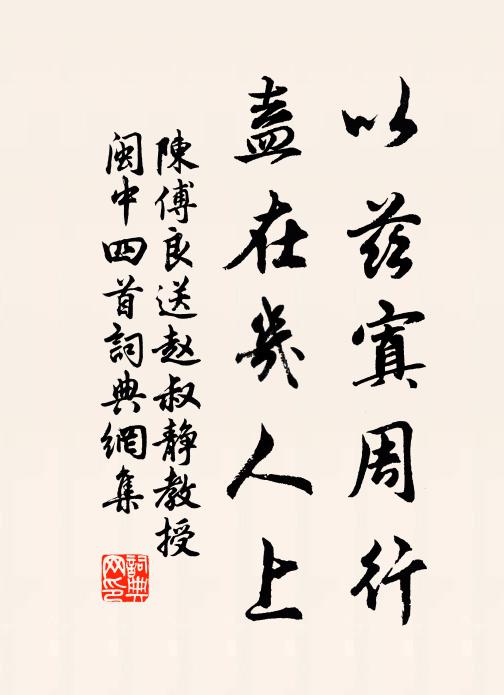 以茲寘周行
盍在幾人上
陳傅良送赵叔静教授
閩中四首詞典網集
詞典
网印